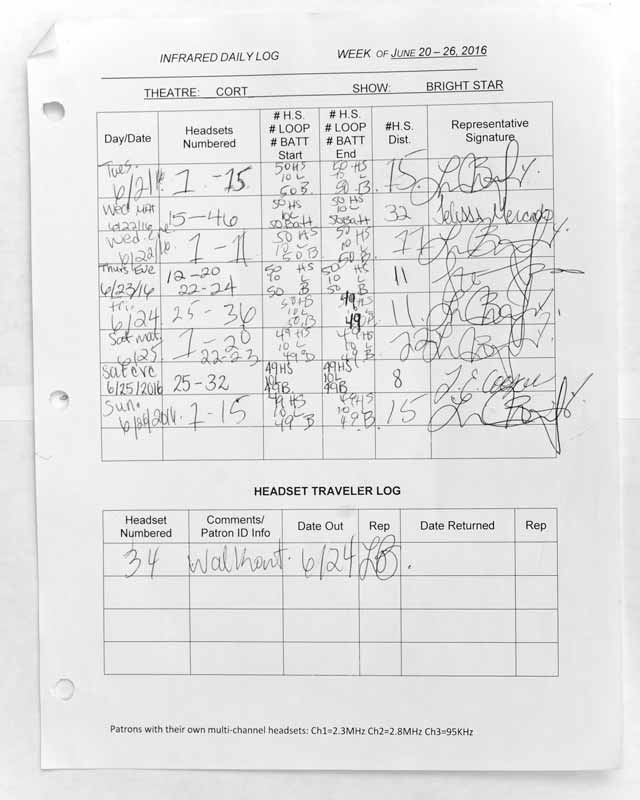 INFRARED DAILY LOG WEEK OF JUNE 20 – 26, 2016
THEATRE: CORT SHOW: BRIGHT STAR
Day/Date Headsets Numbered # H.S. # LOOP # BATT Start # H.S. # LOOP # BATT End #H.S. Dist. Representative Signature
Tues. 6/21/16 1 - 15 50 HS 10 L 50 B 50 HS 10 L 50 B. 15
Wed mat 6/22/16 15 - 46 50 HS 10 L 50 Batt 50 HS 10 L 50 Batt 32
Wed Eve 6/22/16. 1 - 11 50 HS 10 L 50 B 50 HS 10 L 50 B. 11
Thurs Eve 6/23/16 12 - 20 22 - 24 50 HS 10 L 50 B 50 HS 10 L 50 B 11
Fri. 6/24 25 - 36 50 HS 10 L 50 B 49 HS 10 L 49 B 11
Sat mat 6/25 1 - 20 22-23 49 HS 10 L 49 B 49 HS 10 L 49 B
Sat eve 6/25/2016 25 - 32 49HS 10L 49B 49HS 10L 49B 8
Sun. 1 - 15 49 HS 10 L 49 B 49 HS 10 L 49 B. 15
HEADSET TRAVELER LOG
Headset Numbered Comments/ Patron ID Info Date Out Rep Date Returned Rep
34 Walkout. 6/24 LB.
Patrons with their own multi-channel headsets: Ch1=2.3MHz Ch2=2.8MHz Ch3=95KHz